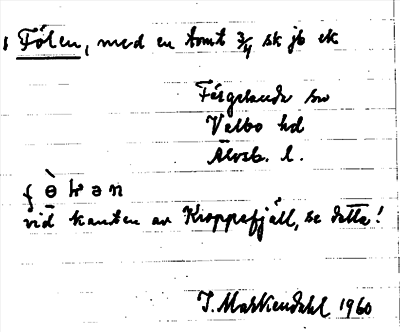 Fölen, med en tomt 3/4 sk jb ek
Färgelanda sn
Valbo hd
Älvsb. l.
vid kanten av Kroppefjäll, se detta!
J. Markendahl 1960